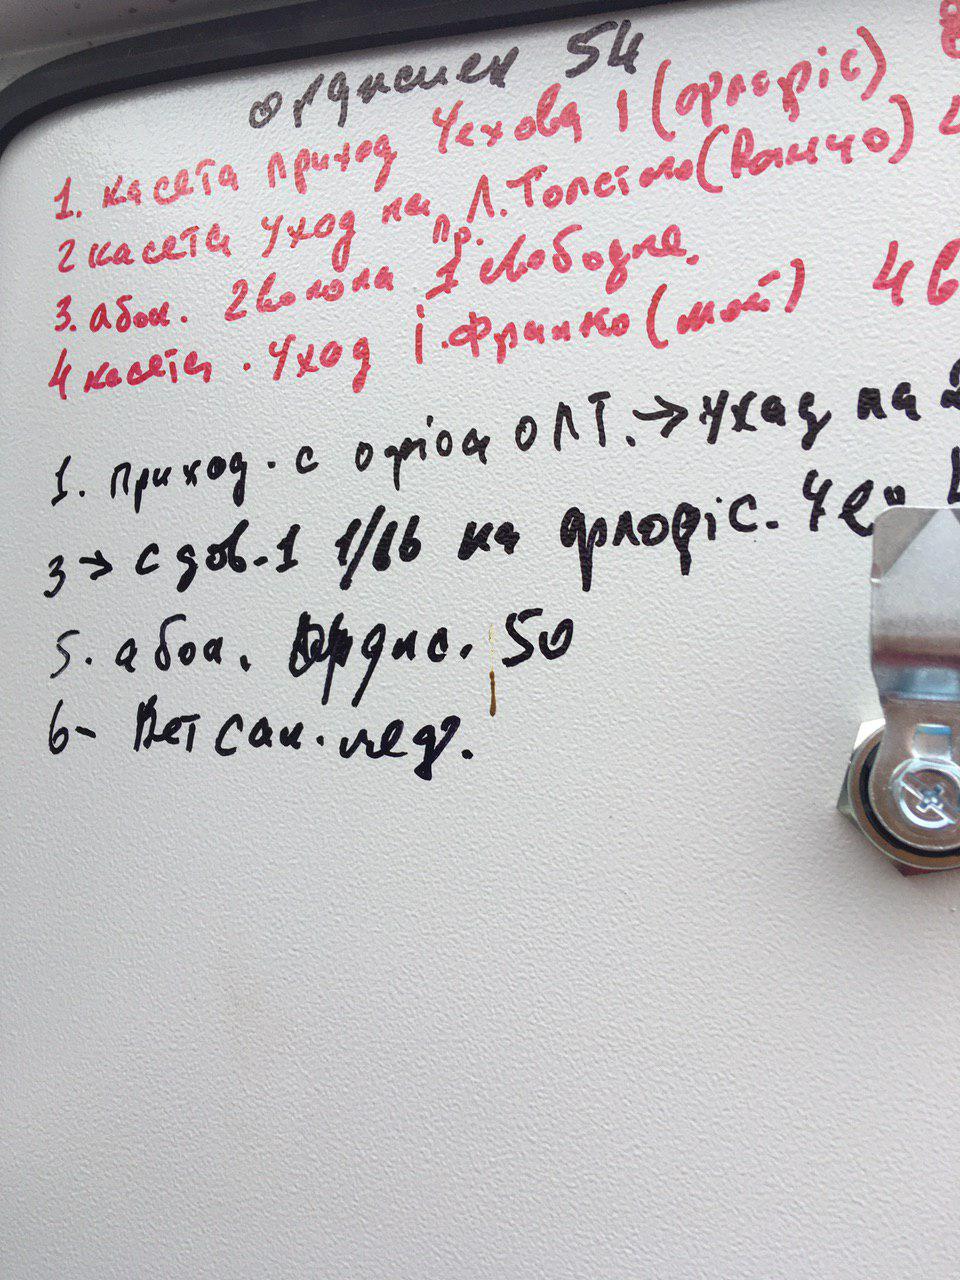 орджонек 54
1. касета приход Чехова 1 (флоріс) 8
2 касета уход на пр. Л. Толстого (Ванчо) 2
3. абон. 2 волокна 1 свободне.
4 касета . уход І. Франко (мой) 4 в
1. приход . с офіса ОЛТ. → уход на 2
3 → с дов. 1 1/16 на флоріс. 4 в"
5. абон. Орджс. 50
6 - Ветсан. мед.